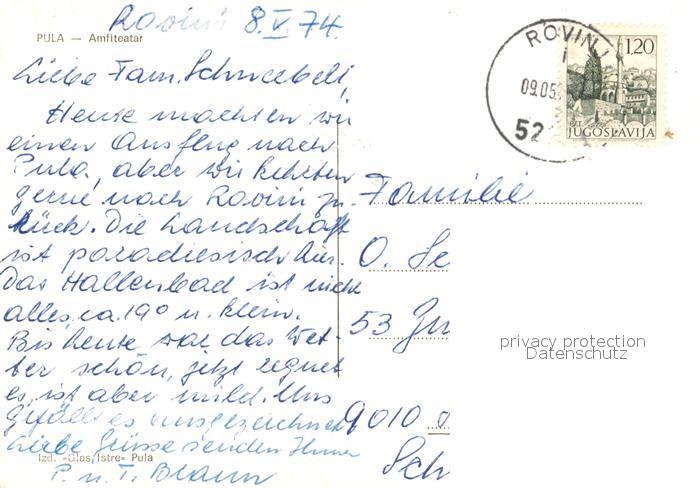 Rovinj 8.V.74.
PULA — Amfiteatar
Liebe Fam. Schwebel,
Heute machten wir
einen Ausflug nach
Pula, aber wir kehrten
gerne nach Rovinj zu-
rück. Die Landschaft
ist paradiesisch hier.
Das Hallenbad ist nicht
alles, ca. 19° u. klein.
Bis heute war das Wet-
ter schön, jetzt regnet
es, ist aber mild. Uns
gefällt es ausgezeichnet
Liebe Grüsse senden Ihnen
P. u. T. Braun
Izd. »Glas Istre« Pula
ROVINJ
09.05.
52
1,20
JUGOSLAVIJA
Familie
O. Sc
53
9010
Sch
privacy protection
Datenschutz